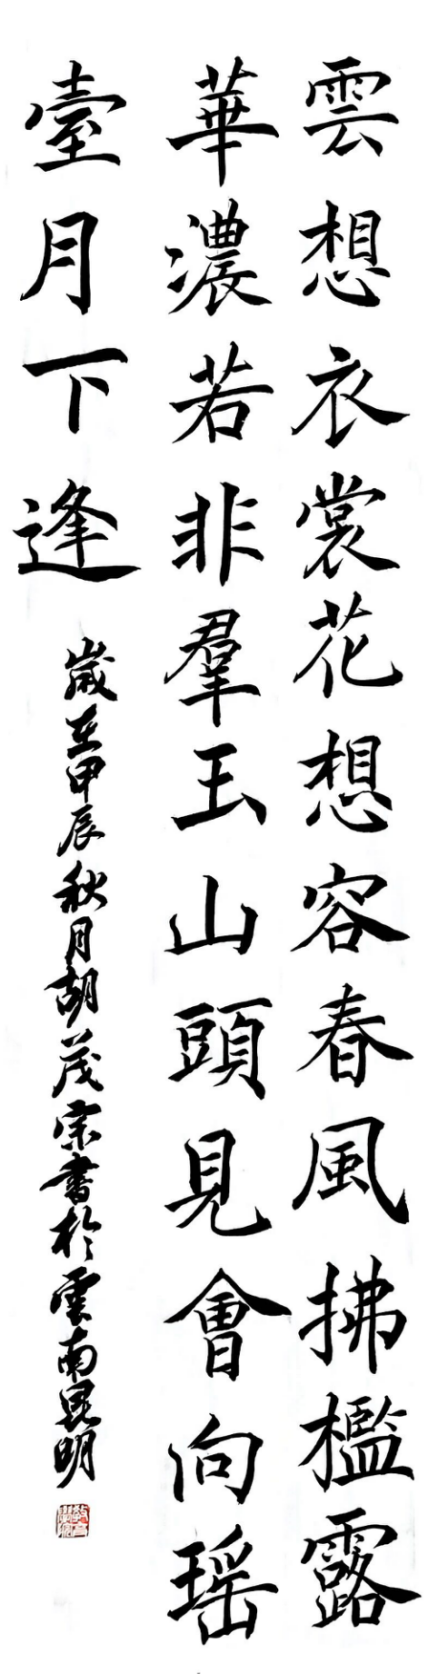 雲想衣裳花想容春風拂檻露
華濃若非羣玉山頭見會向瑶
臺月下逢
歲在甲辰秋月胡茂宗書於雲南昆明